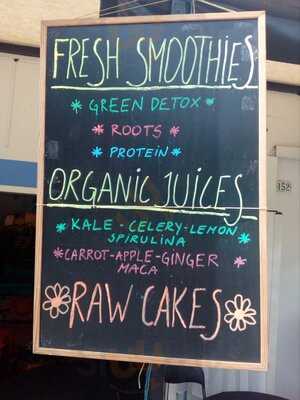 FRESH SMOOTHIES
* GREEN DETOX *
* ROOTS *
* PROTEIN *
ORGANIC JUICES
* KALE - CELERY - LEMON *
SPIRULINA
* CARROT - APPLE - GINGER *
MACA
RAW CAKES
152